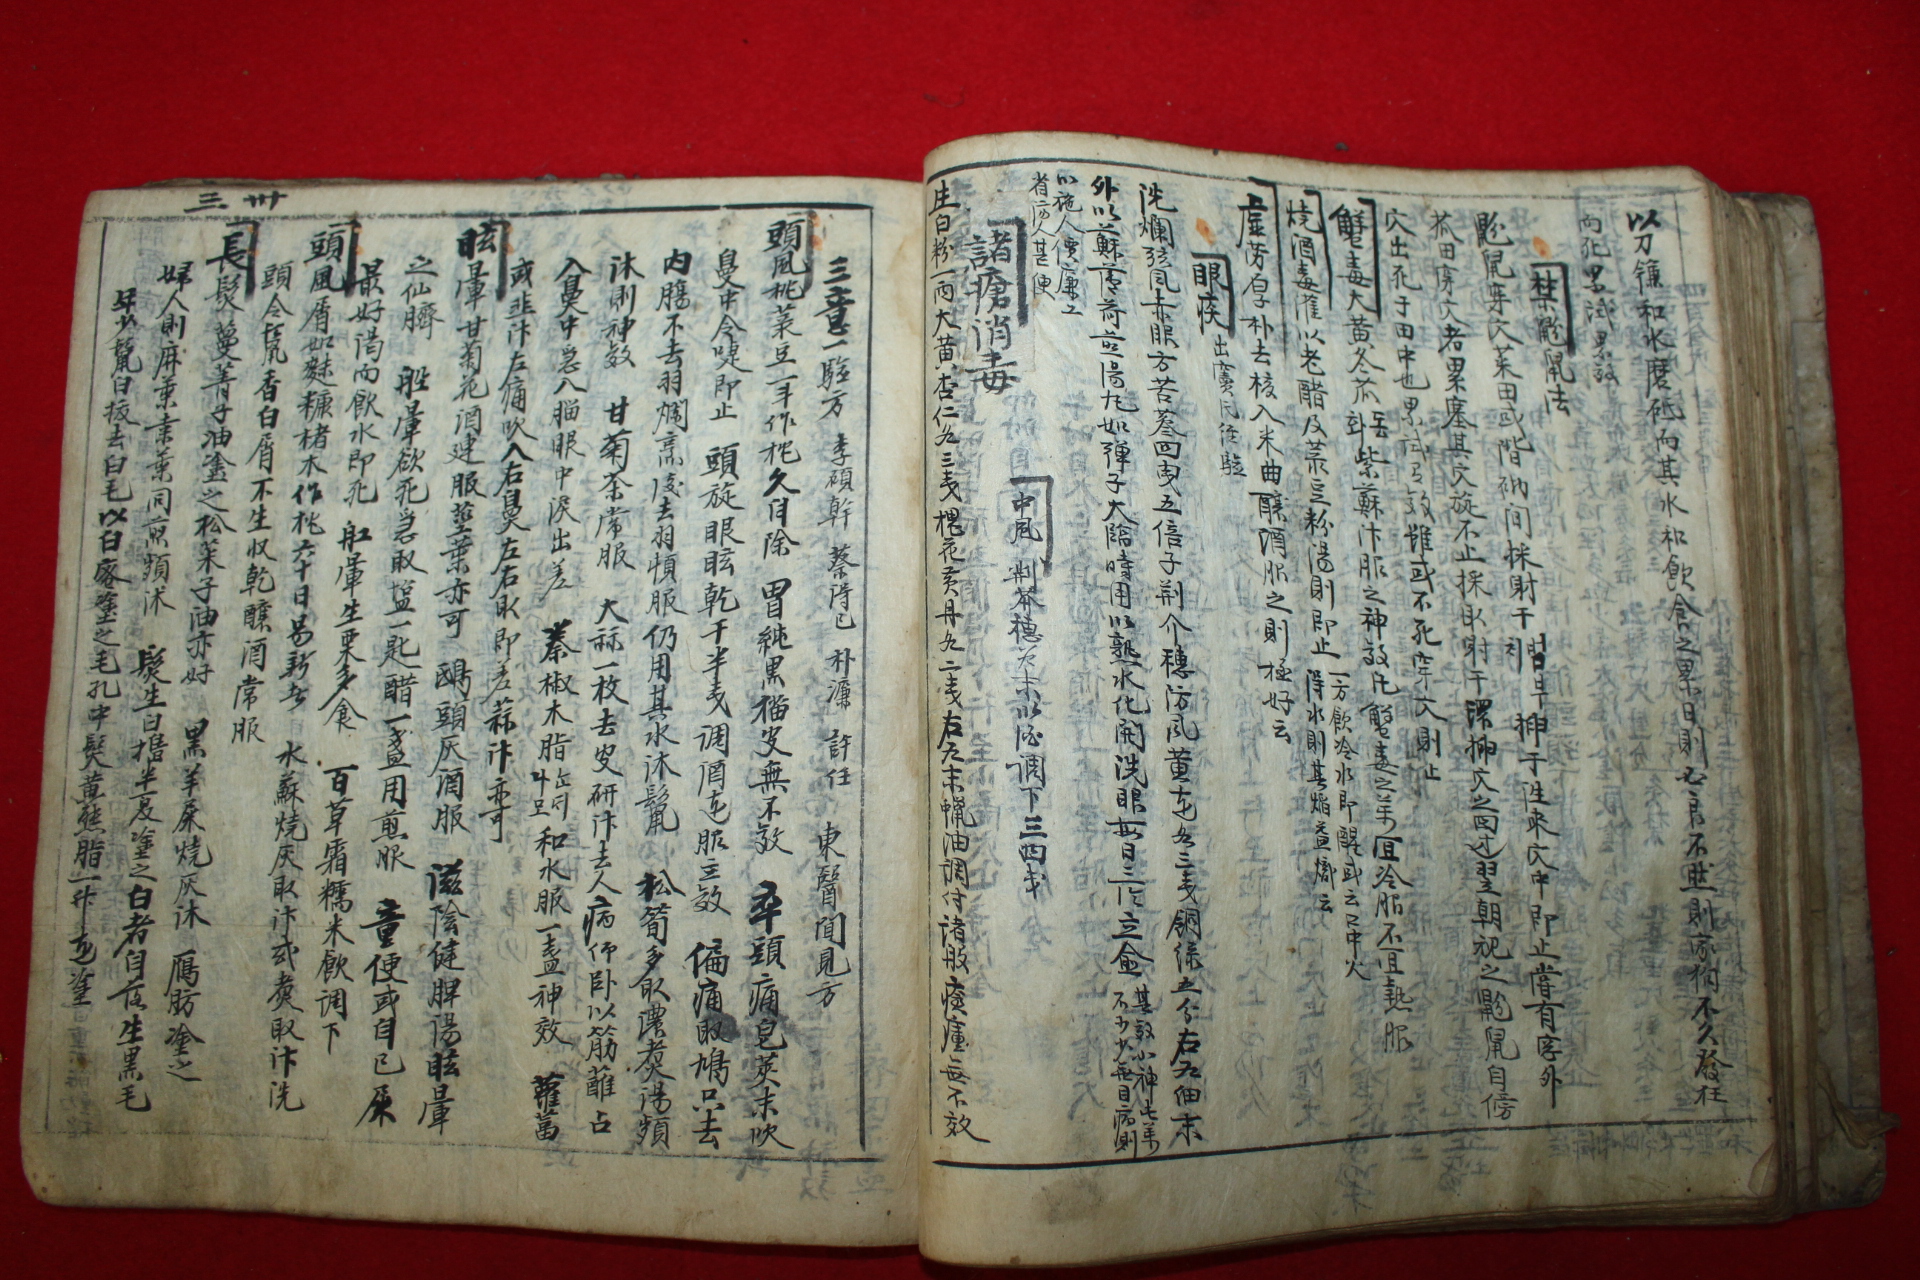 以刀鎌和水磨砥而其水和飮食之累日則必良不然則家狗不久發狂
而死累試累效
禁鼢鼠法
鼢鼠穿穴菜田或階砌間採射干挿于往來穴中即止當有穿外
苽田穿穴者累塞其穴旋不止採射干深挿穴之四邊翌朝視之鼢鼠自傍
穴出死于田中也累試有效雖或不死穿穴則止
蟹毒大黃冬苽紫蘇汁服之神效凡蟹毒之藥宜冷服不宜熱服
燒酒毒灌以老醋及菉豆粉湯則即止一方飮冷水即醒或云口中火
得水則其焰益熾云
虛勞皂子朴去核入米曲釀酒服之則極好云
眼疾
洗爛弦風赤眼方苦蔘四戔五倍子荊介穗防風黃連各三戔銅綠五分右爲細末
外以蘇薄荷煎湯丸如彈子大臨時用以熟水化開洗眼每日三次立愈
以施人價廉工
省防人甚便
中風 荊芥穗爲末以酒調下三四戔
諸瘡消毒
生白粉一兩大黃杏仁各三戔槐花黃丹各二戔右爲末蝋油調付諸般瘡無不效
三卅
三意一驗方 李碩幹 蔡得己 朴濂 許任 東醫聞見方
頭風桃菜豆一斗作枕久自除 胃純黑猫皮無不效 卒頭痛皂莢末吹
鼻中令嚏即止 頭旋眼眩乾干半戔調酒連服立效 偏痛取鳩只去
內膓不去羽爛烹後去羽頓服仍用其水沐鬢 松筍多取濃煮湯頻
沐則神效 甘菊茶常服 大蒜一枚去皮研汁去人病仰臥以筋蘸占
入鼻中急入腦眼中淚出差 蓁椒木脂和水服一盞神效 蘿葍
或韭汁左痛吹入右鼻左右取即差蒜汁亦可
眩暈甘菊花酒連服莖葉亦可 鴟頭灰酒服 滋陰健脾湯眩暈
之仙臍 船暈欲死急取塩一匙醋一盞用煎服 童便或自己尿
最好渴而飮水即死 舡暈生栗多食 百草霜糯米飮調下
頭風屑如麩糠楮木作枕六十日易新者 水蘇燒灰取汁或煮取汁洗
頭令髮香白屑不生收乾釀酒常服
長髮蔓菁子油塗之松菜子油亦好 黑羊屎燒灰沐 鴈肪塗之
婦人則麻葉桑葉同煎頻沐 髮生白墻半夏塗之白者自落生黑毛
年少鬢白拔去白毛以白蜜塗之毛孔中髮黃熊脂一升連塗